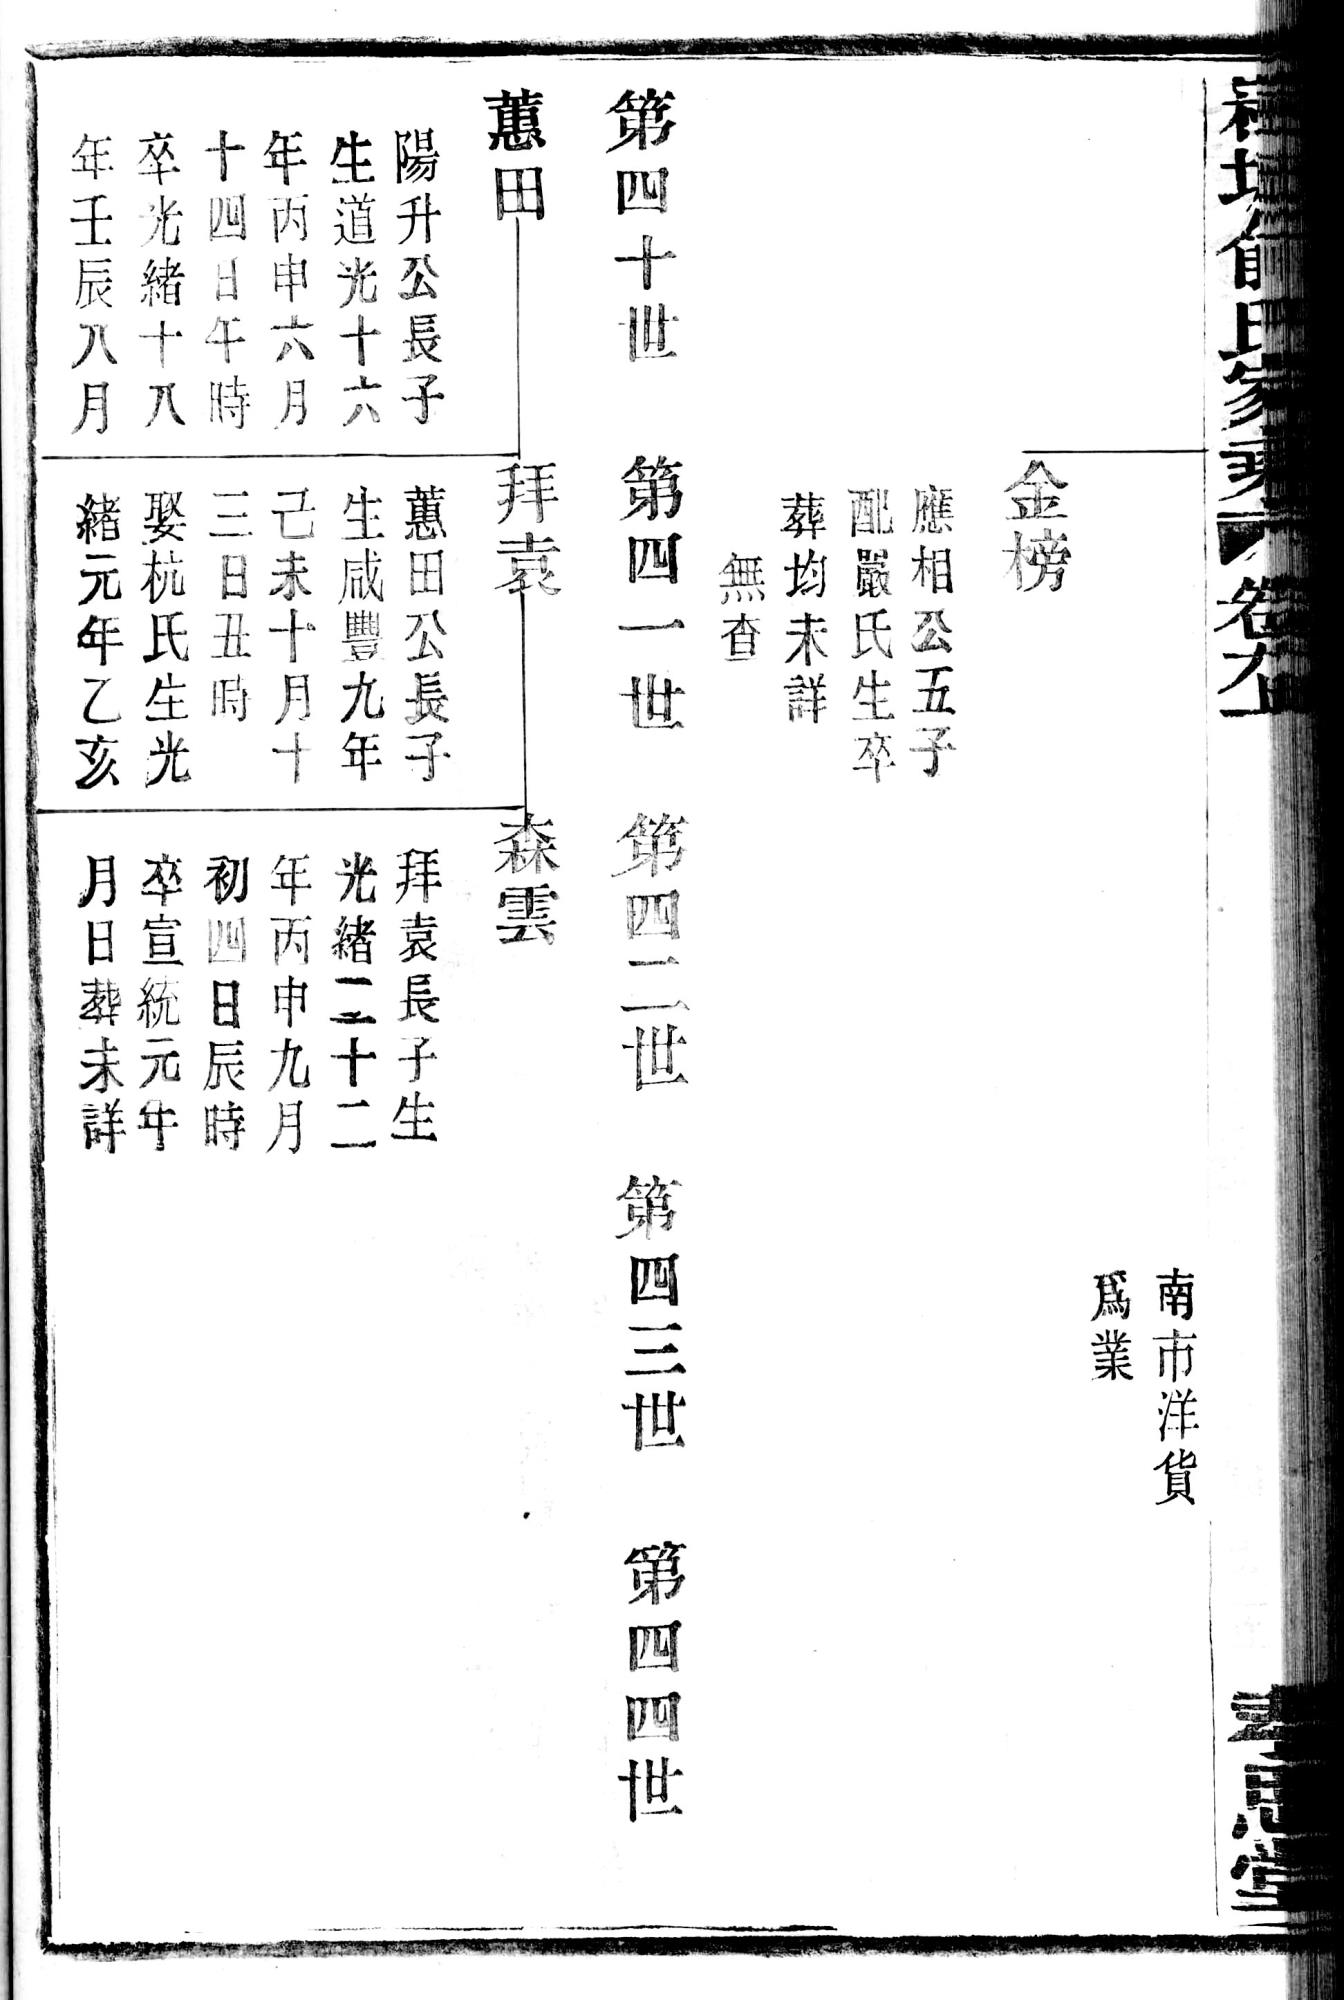 俞氏家乘 卷九上
思堂
南市洋貨
爲業
金榜
應相公五子
配嚴氏生卒
葬均未詳
無查
第四十世
第四一世
第四二世
第四三世
第四四世
蕙田
陽升公長子
生道光十六
年丙申六月
十四日午時
卒光緒十八
年壬辰八月
拜袁
蕙田公長子
生咸豐九年
己未十月十
三日丑時
娶杭氏生光
緒元年乙亥
森雲
拜袁長子生
光緒二十二
年丙申九月
初四日辰時
卒宣統元年
月日葬未詳